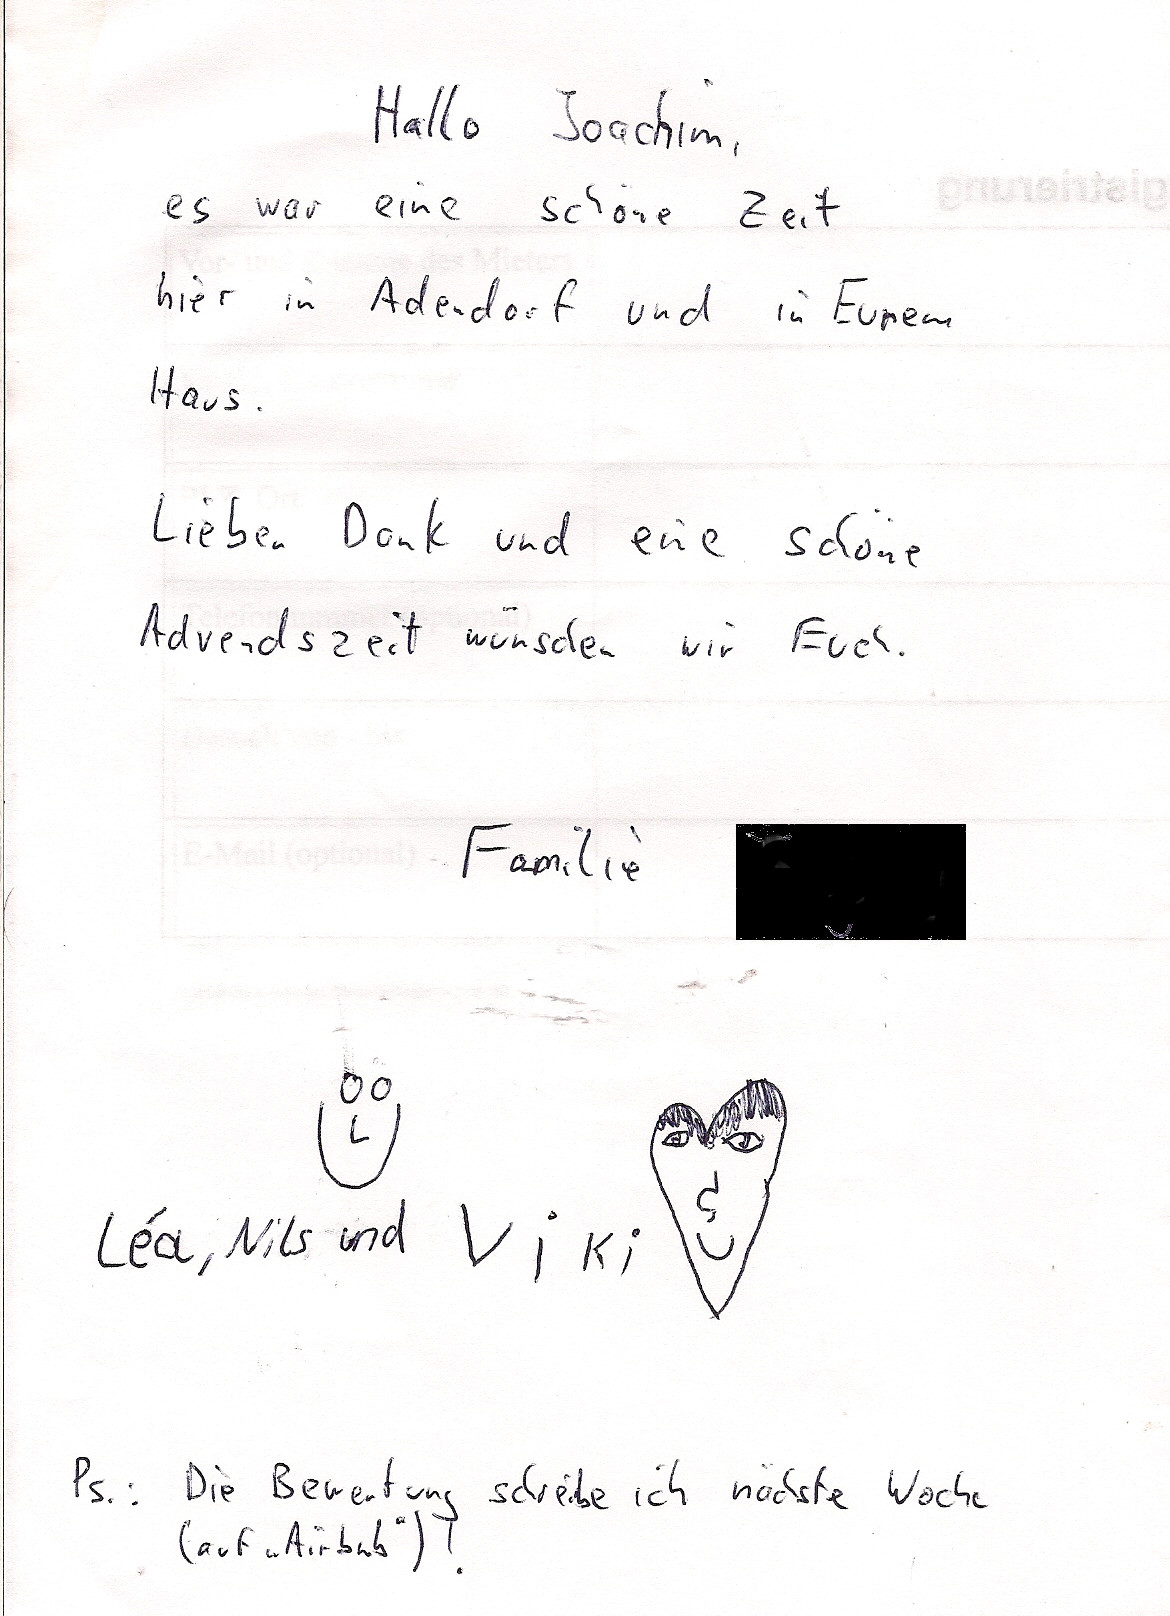 Hallo Joachim,
es war eine schöne Zeit
hier in Adendorf und in Eurem
Haus.
Lieben Dank und eine schöne
Advendszeit wünschen wir Euch.
Familie
Léa, Nils und Viki
Ps.: Die Bewertung schreibe ich nächste Woche
(auf „Airbnb“)!
gistrierung
Vor- und Zuname des Mieters
PLZ, Ort
Telefonnummer (optional)
E-Mail (optional)